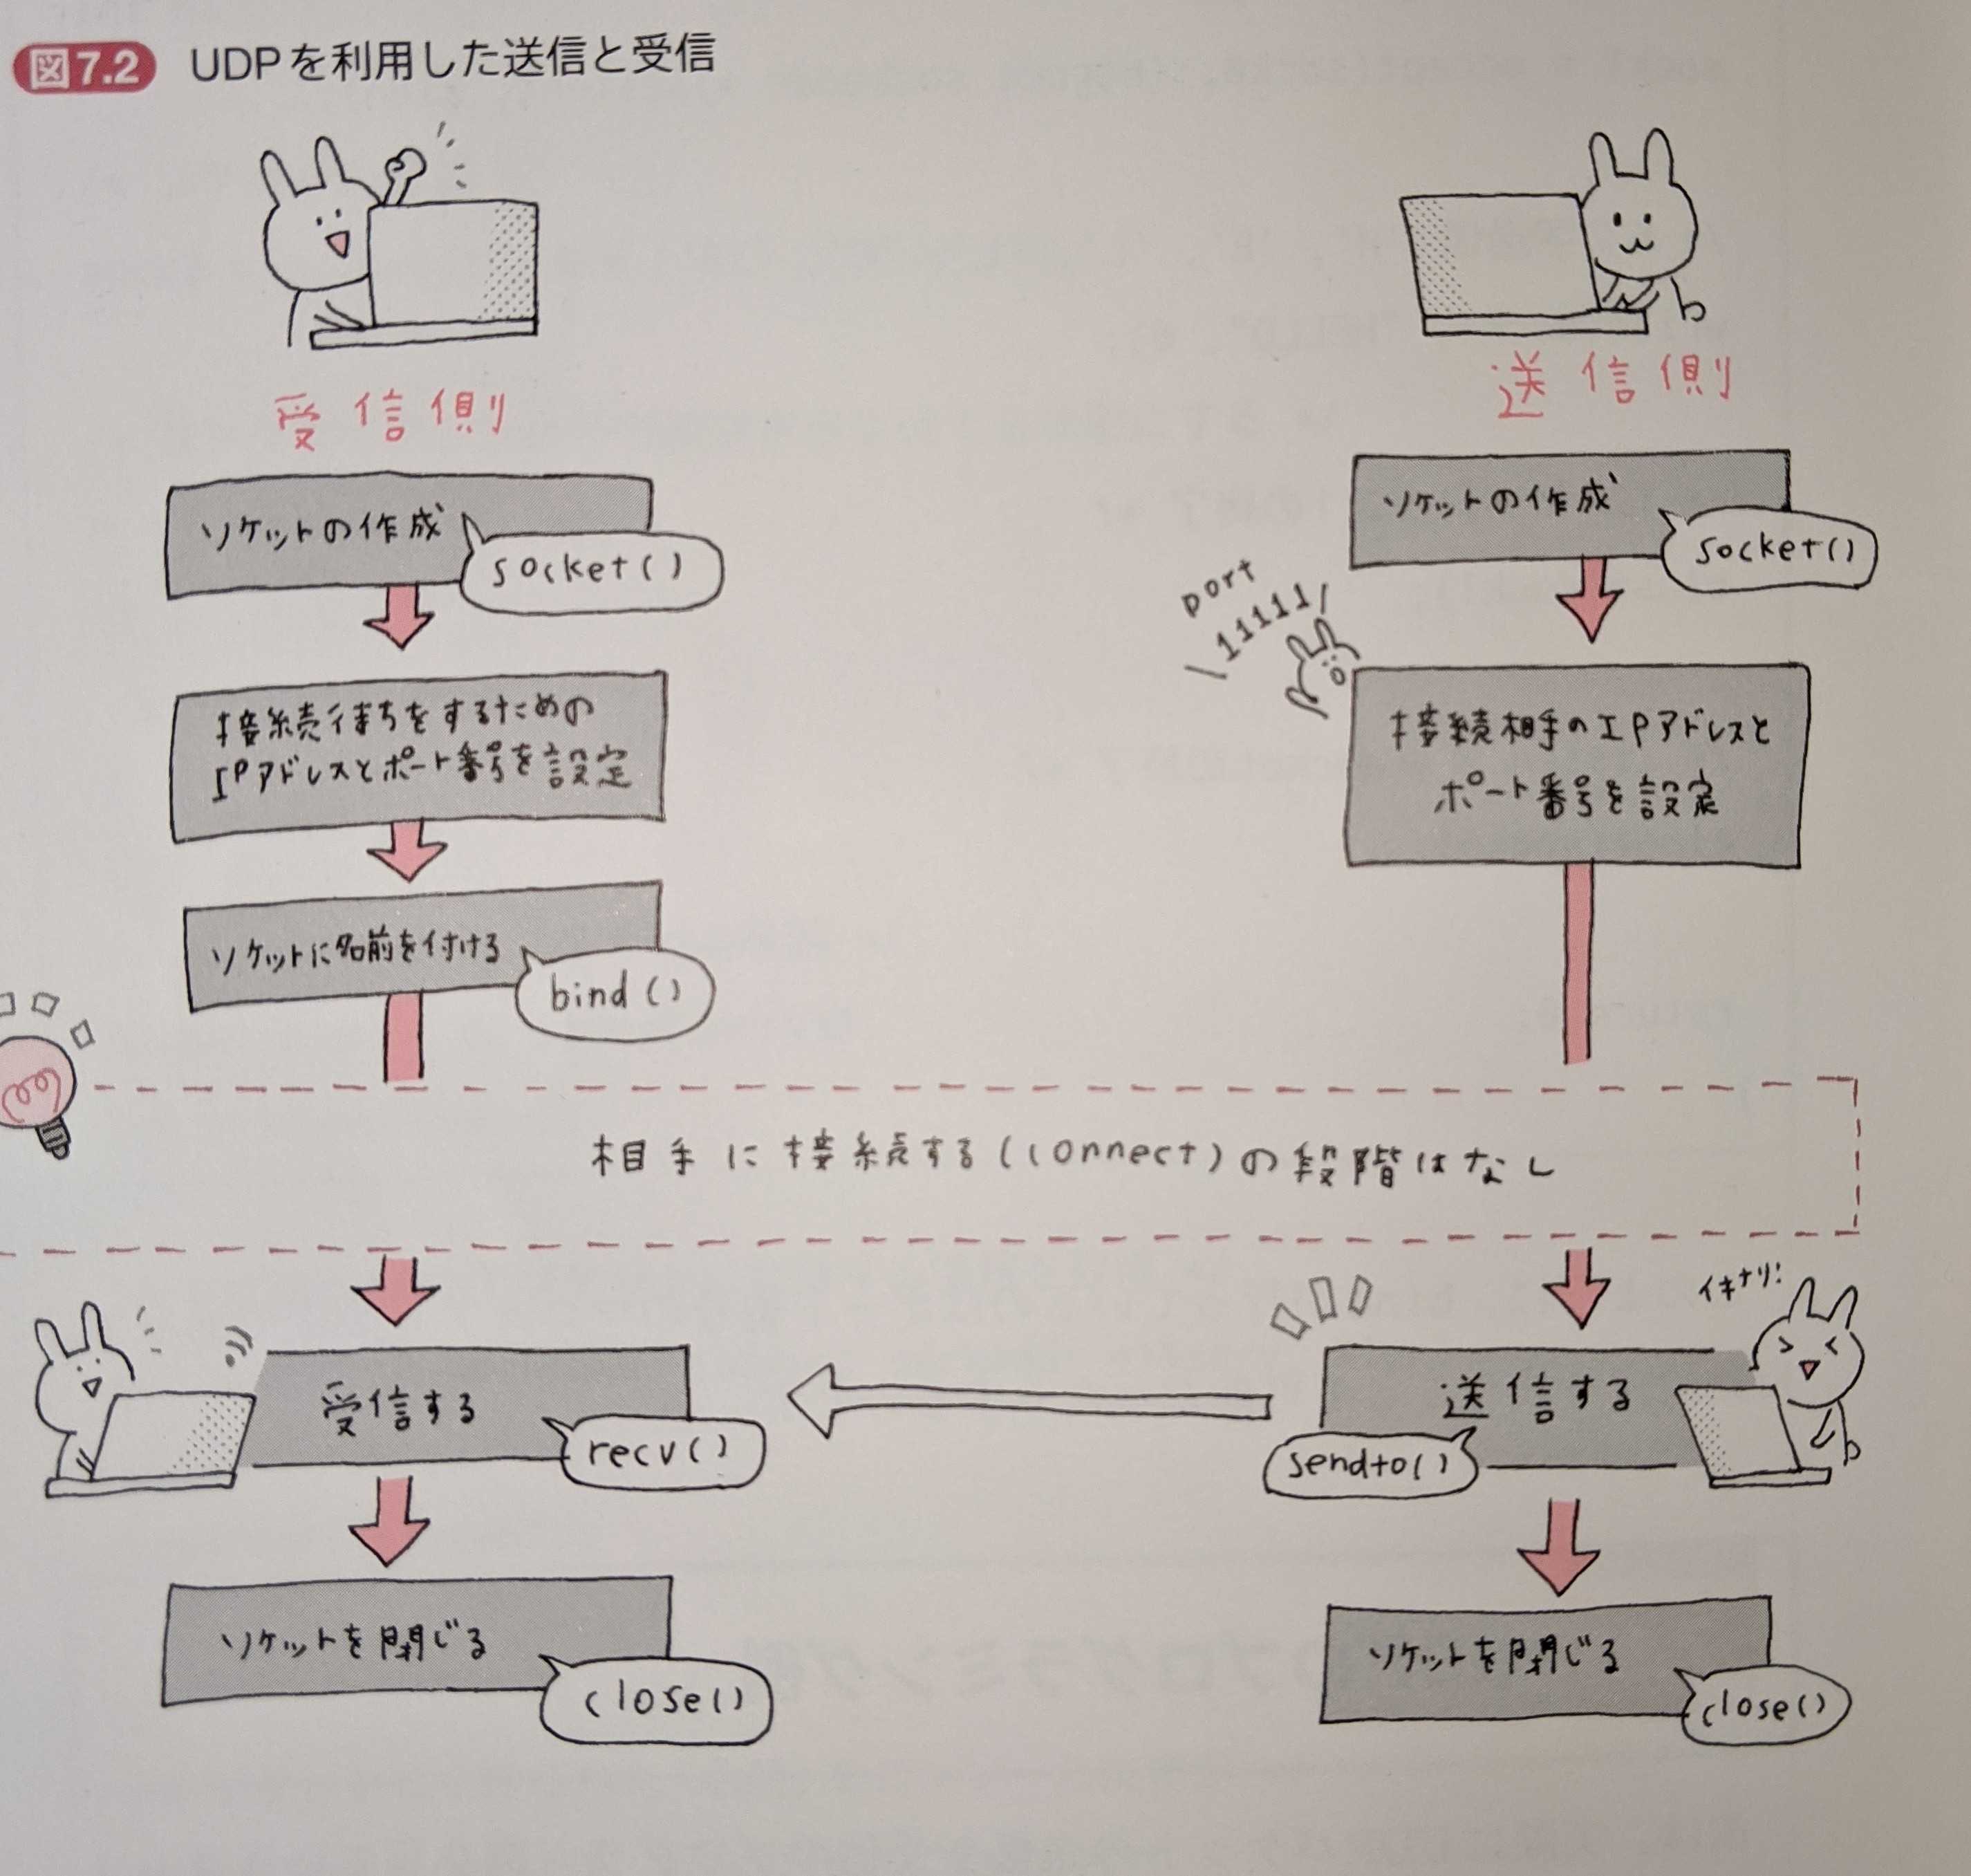 図7.2 UDPを利用した送信と受信
受信側
ソケットの作成
socket()
接続待ちをするための
IPアドレスとポート番号を設定
ソケットに名前を付ける
bind()
送信側
ソケットの作成
socket()
port
11111
接続相手のIPアドレスと
ポート番号を設定
相手に接続する(connect)の段階はなし
受信する
recv()
イキナリ!
送信する
sendto()
ソケットを閉じる
close()
ソケットを閉じる
close()